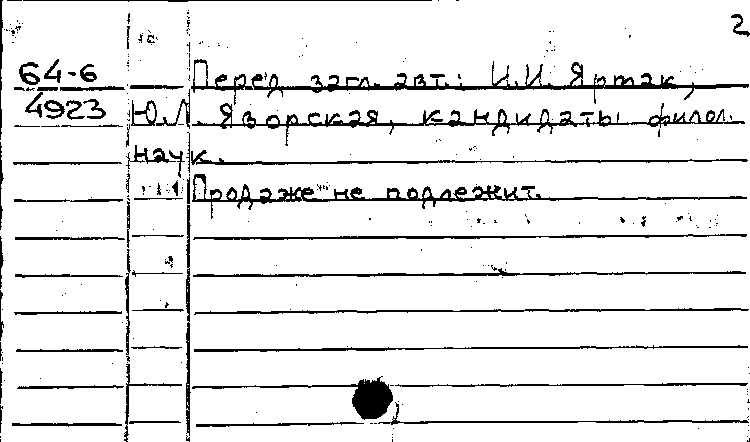 2
64-6 Перед загл. авт.: И.И. Яртак,
4923 Ю.Л. Яворская, кандидаты филол.
наук.
Продаже не подлежит.